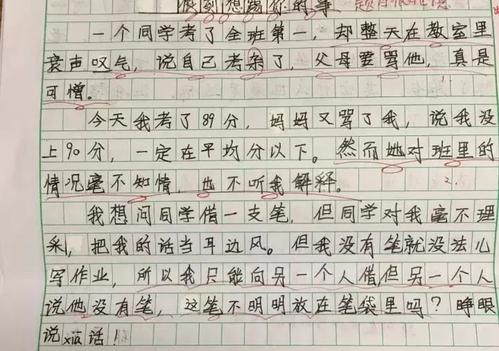 想
你的事
一个同学考了全班第一，却整天在教室里
哀声叹气，说自己考杂了，父母要骂他，真是
可憎。
今天我考了89分，妈妈又骂了我，说我没
上90分，一定在平均分以下。然而她对班里的
情况毫不知情，也不听我解释。
2.
我想问同学借一支笔，但同学对我毫不理
采，把我的话当耳边风。但我没有笔就没法儿
写作业，所以我只能向另一个人借，但另一个人
说他没有笔，这笔不明明放在笔袋里吗？睁眼
说xiā话！